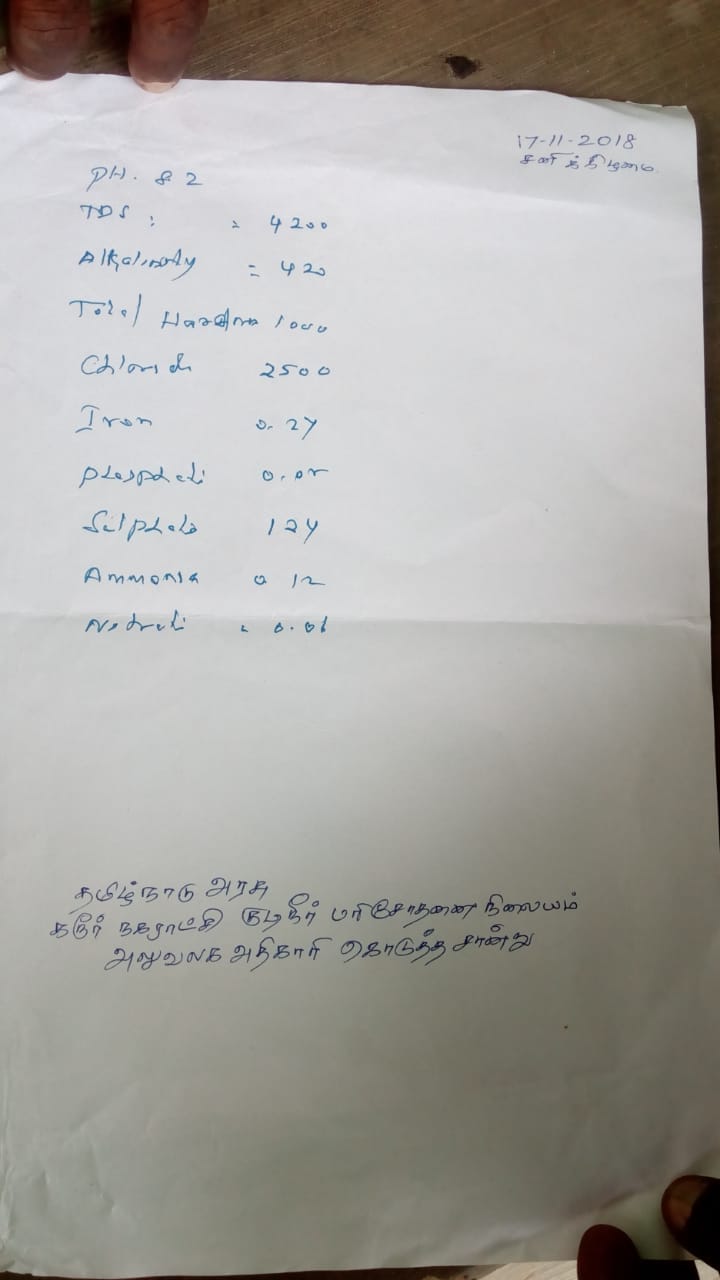 17-11-2018
சனிக்கிழமை
PH. 8 2
TDS : = 4200
Alkalinity = 420
Total Hardness 1000
Chloride 2500
Iron 0.24
phosphate 0.05
Sulphate 124
Ammonia 0 12
Nitrate = 0.06
தமிழ்நாடு அரசு
கரூர் நகராட்சி குடிநீர் பரிசோதனை நிலையம்
அலுவலக அதிகாரி கொடுத்த சான்று